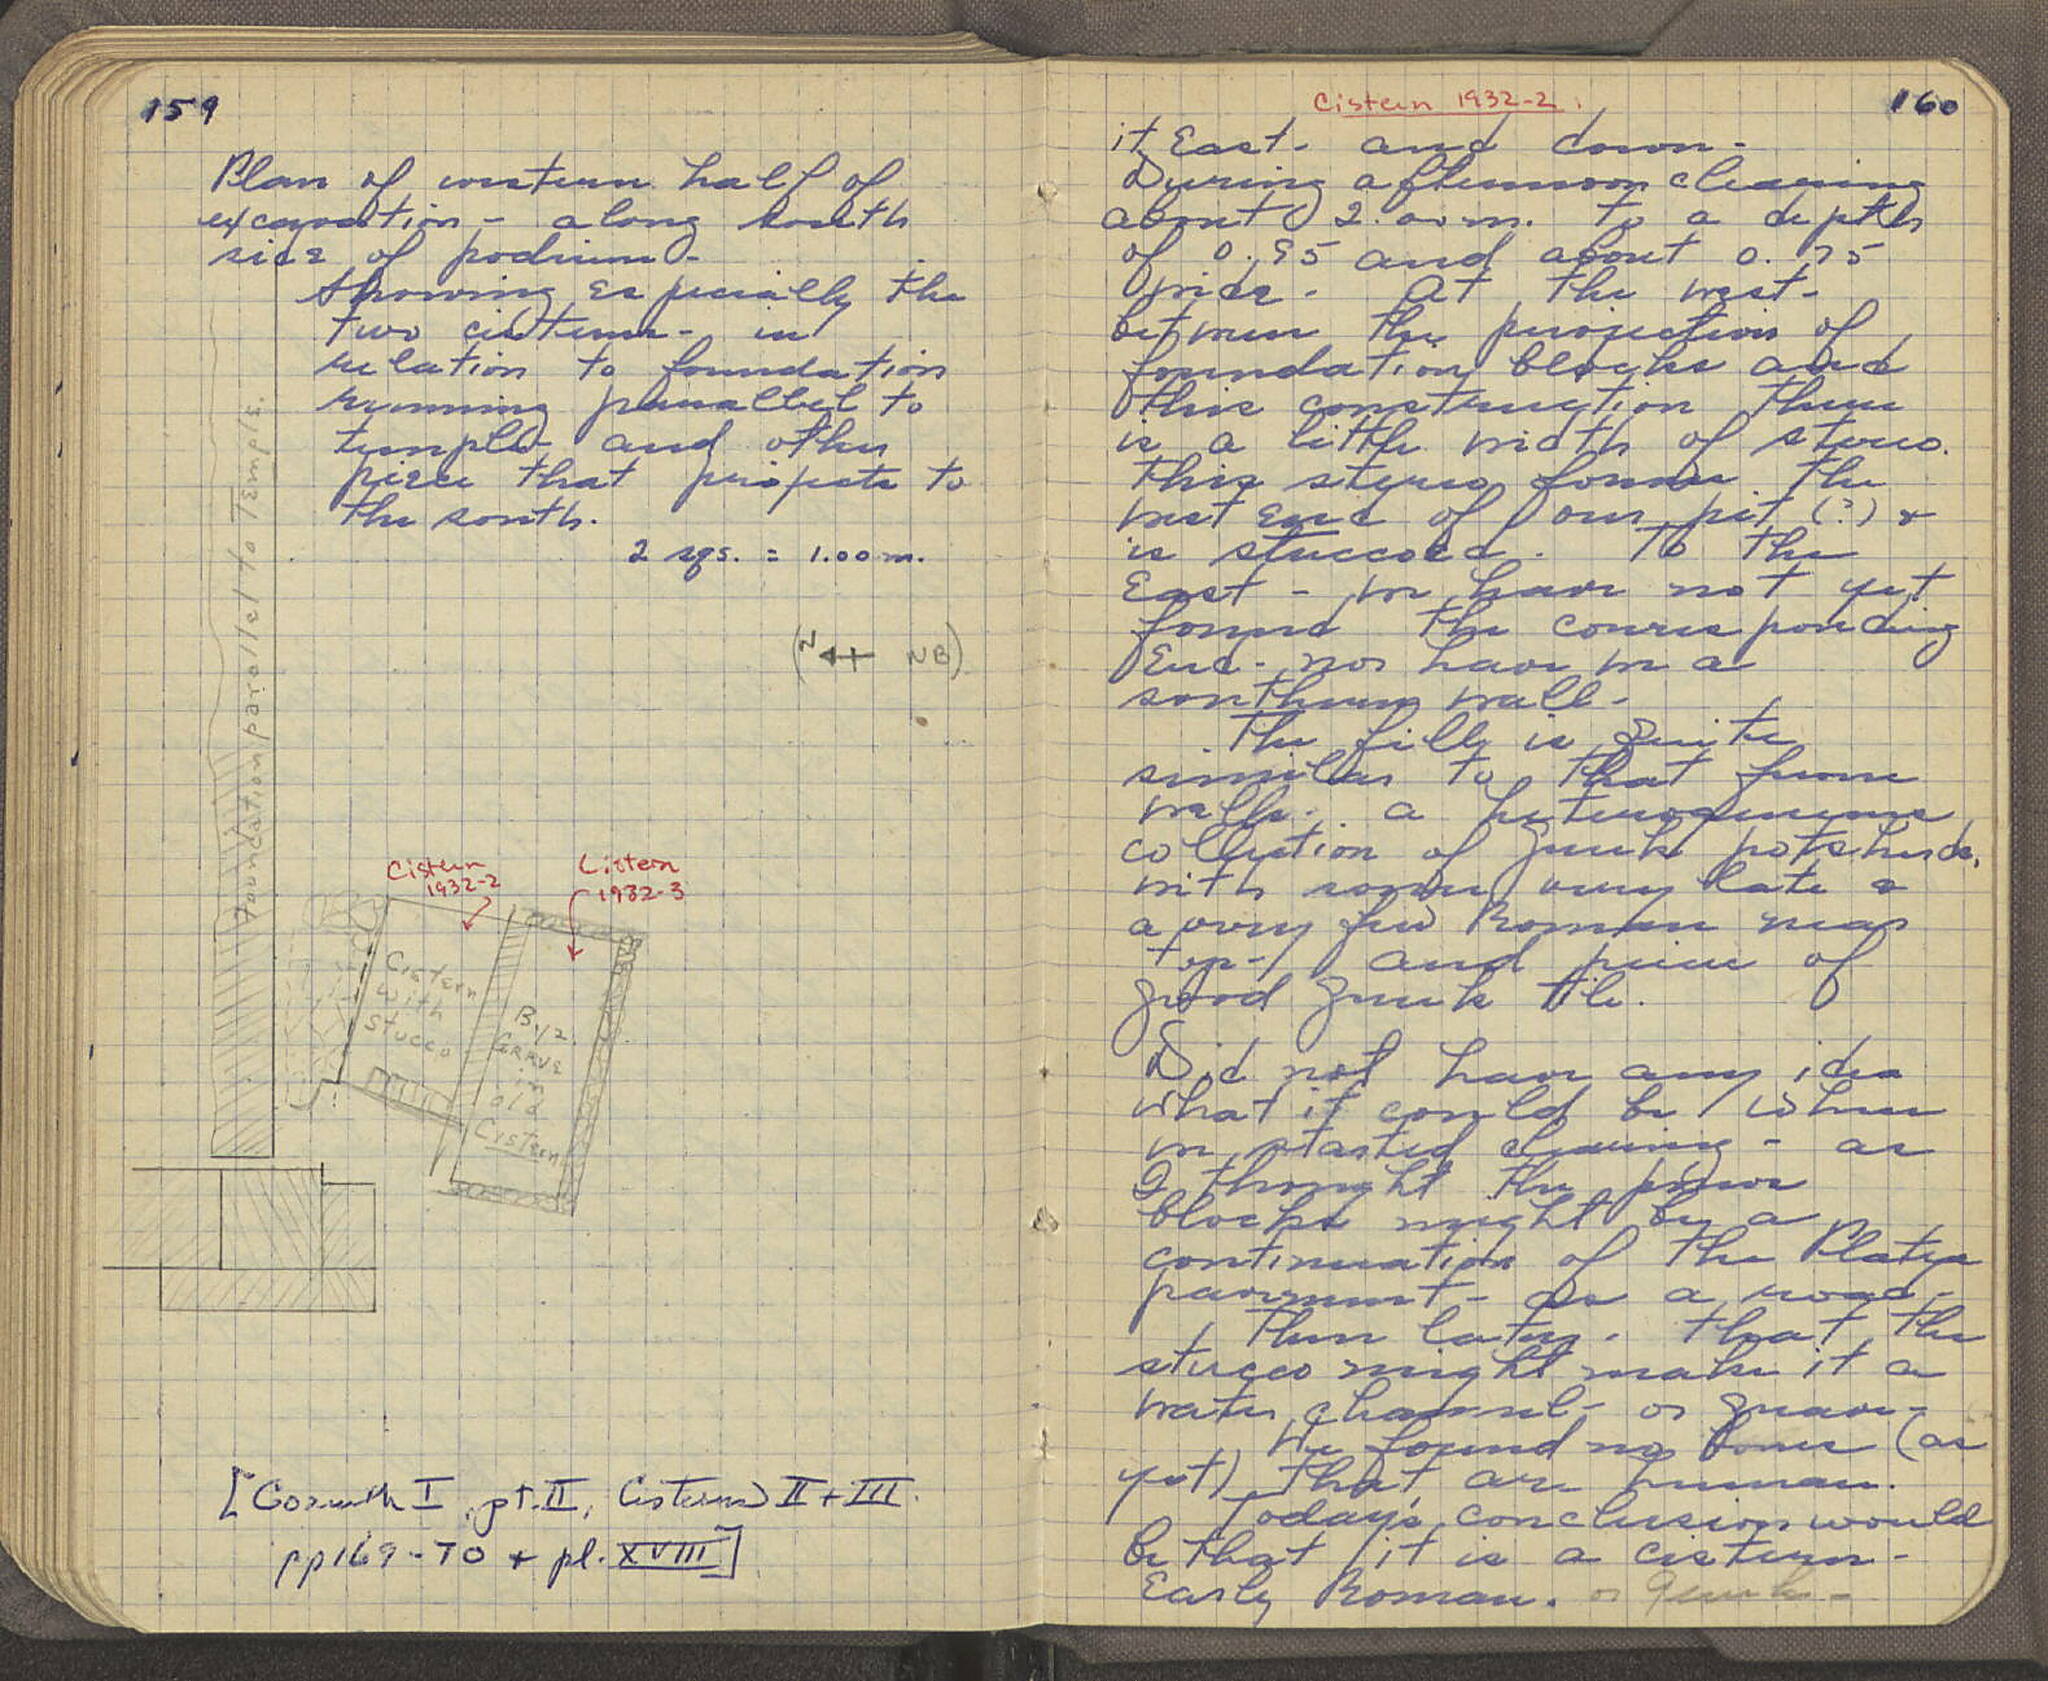 159
Plan of western half of
excavation - along south
side of podium.
Showing especially the
two cisterns - in
relation to foundation
running parallel to
temple and other
piece that projects to
the south.
2 sqs. = 1.00 m.
(N NB)
Foundation parallel to Temple.
Cistern
1932-2
Cistern
1932-3
Cistern
with
stucco
Byz.
Grave
in
old
Cistern
[Corinth I, pt. II, Cisterns II + III.
pp 169-70 + pl. XVIII]
Cistern 1932-2.
160
it East. and down.
During afternoon clearing
about 2.00 m. to a depth
of 0.95 and about 0.75
wide. At the west.
between the projection of
foundation blocks and
this construction there
is a little width of stereo.
This stereo forms the
west end of our pit (?) &
is stuccoed. To the
East - we have not yet
found the corresponding
End - nor have we a
southern wall.
The fill is quite
similar to that from
wells. a heterogeneous
collection of Greek potsherds,
with some very late &
a very few Roman near
top - and piece of
good Greek tile.
Did not have any idea
what it could be when
we started clearing - as
I thought the poros
blocks might be a
continuation of the Plateia
pavement - as a road -
Then later. that the
stucco might make it a
water channel - or grave -
We found no bones (as
yet) that are human.
Today's conclusion would
be that it is a cistern -
Early Roman. or Greek -